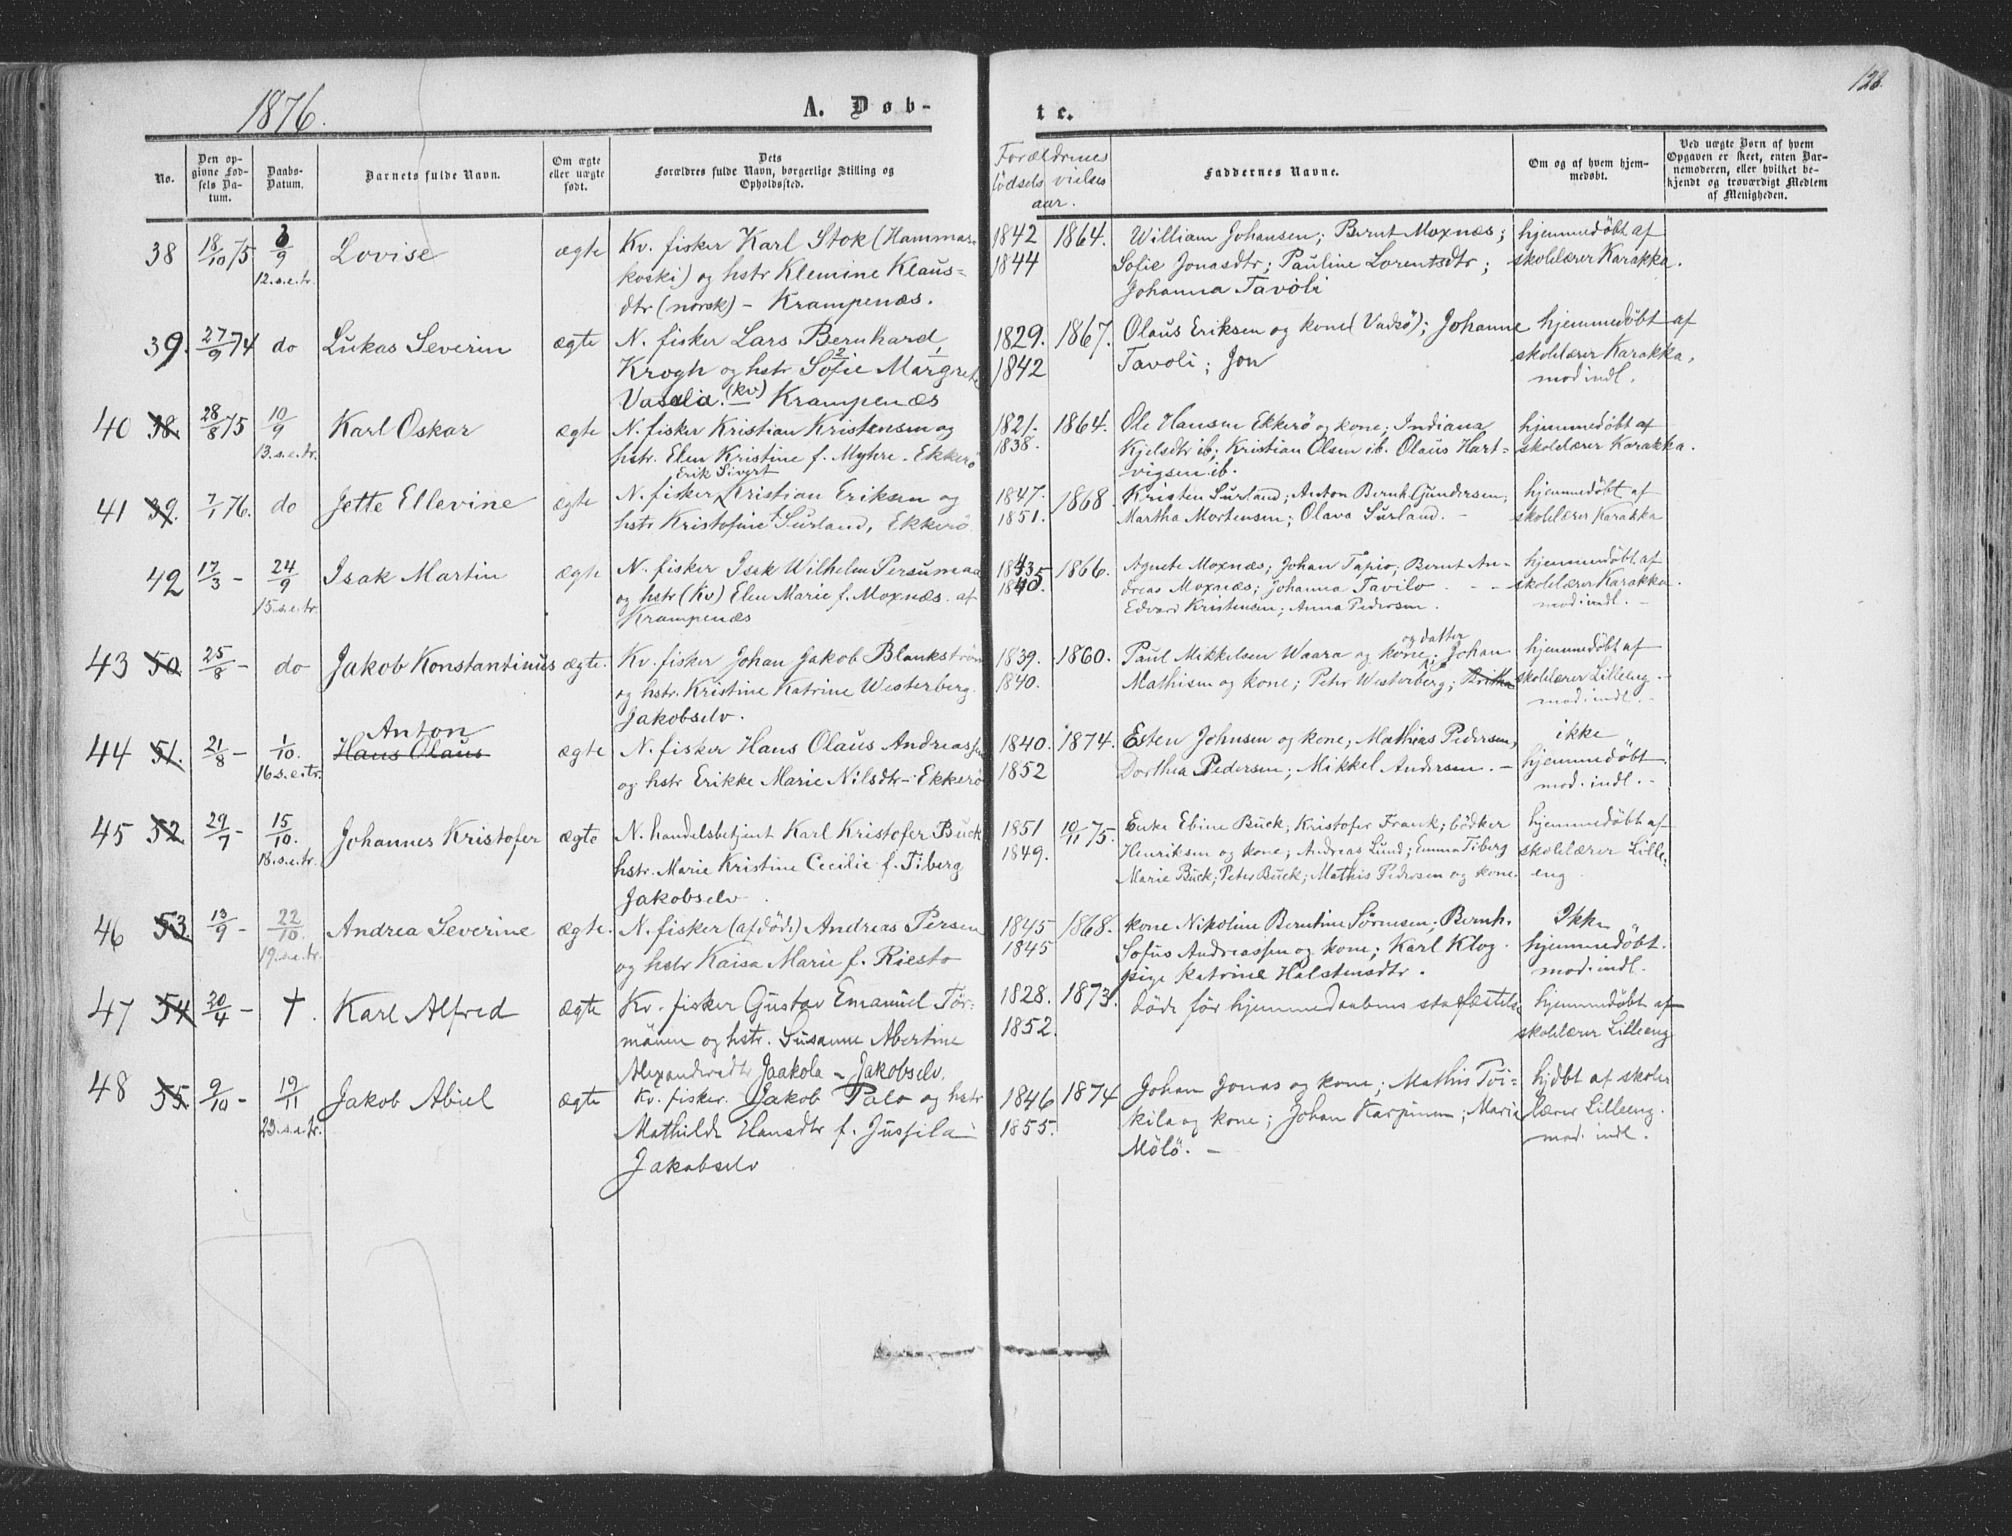 1876.
A. Døb-
te.
128.
No.
Den op-
givne Fød-
sels Da-
tum.
Daabs-
Datum.
Barnets fulde Navn.
Om ægte
eller uægte
født.
Dets
Forældres fulde Navn, borgerlige Stilling og
Opholdssted.
Forældrenes
fødsels vielses
aar.
Faddernes Navne.
Om og af hvem hjem-
medøbt.
Ved uægte Børn af hvem
Opgaven er skeet, enten Bar-
nemoderen, eller hvilket be-
kjendt og troværdigt Medlem
af Menigheden.
38 18/10 75 3/9 Lovise ægte Kv. fisker Karl Stok (Hammar- 1842 1864. William Johansen; Bernt Moxnæs; hjemmedøbt af
12.s.e.tr. koski) og hstr Klemine Klaus= 1844 Sofie Jonasdtr; Pauline Lorentsdtr; skolelærer Karakka.
dtr (norsk) - Krampenæs. Johanna Tavöli
39. 27/9 74 do Lukas Severin ægte N. fisker Lars Bernhard 1829. 1867. Olaus Eriksen og kone (Vadsø); Johanne hjemmedøbt af
Krogh og hstr Sofie Margrete 1842 Tavoli; Jon skolelærer Karakka,
Vasalia. (kv) Krampenæs mod indl.
40 38. 28/8 75 10/9 Karl Oskar ægte N. fisker Kristian Kristensen og 1821. 1864. Ole Hansen Ekkerö og kone; Indiana hjemmedøbt af
13.s.e.tr. hstr. Elen Kristine f. Myhre. Ekkerö 1838. Kjelsdtr ib; Kristian Olsen ib. Olaus Hart- skolelærer Karakka.
vigsen ib.
Erik Sivert
41 39. 7/1 76. do Jette Ellevine ægte N. fisker Kristian Eriksen og 1847. 1868 Kristen Surland; Anton Bernh. Gundersen; hjemmedøbt af
hstr Kristofine Surland, Ekkerö 1851. Martha Mortensen; Olava Surland. - skolelærer Karakka
42 17/3 - 24/9 Isak Martin ægte N. fisker Isak Wilhelm Persumaa 1866. Agnete Moxnæs; Johan Tapio; Bernt An- hjemmedøbt af
15.s.e.tr. og hstr (Kv) Elen Marie f. Moxnæs. af dreas Moxnæs; Johanna Tavilo - - skolelærer Karakka.
Krampenæs Edvard Kristensen; Anna Pedersen. mod indl. -
og datter
43 50. 25/8 - do Jakob Konstantinus ægte. Kv. fisker Johan Jakob Blankström 1839. 1860. Paul Mikkelsen Waara og kone; Johan hjemmedøbt af
og hstr. Kristine Katrine Westerberg. 1840. Mathisen og kone; Peter Westerberg; Britha skolelærer Lilleeng -
Jakobselv. mod. indl. -
Anton
44 51. 21/8 - 1/10. Hans Olaus ægte N. fisker Hans Olaus Andreassen 1840. 1874. Esten Johnsen og kone; Mathias Pedersen, ikke
16.s.e.tr. og hstr Erikke Marie Nilsdtr - Ekkerö 1852 Dorthea Pedersen; Mikkel Andersen. - hjemmedøbt.
mod. indl. -
45 52. 29/7 - 15/10. Johannes Kristofer ægte N. handelsbetjent Karl Kristofer Buck 1851 10/11 75. Enke Ebine Buck; Kristofer Frank; bödker hjemmedøbt af
18.s.e.tr. hstr. Marie Kristine Cecilie f. Tiberg 1849. Henriksen og kone; Andreas Lund; Emma Tiberg skolelærer Lille-
Jakobselv. Marie Buck; Peter Buck; Mathis Pedersen og kone. eng
46 53. 13/9 - 22/10. Andrea Severine ægte. N. fisker (afdöd) Andreas Persen 1845 1868. kone Nikoline Berntine Sörensen; Bernh. Ikke
19.s.e.tr. og hstr Kaisa Marie f. Riesto 1845 Sofus Andreassen og kone; Karl Klog hjemmedøbt.
pige Katrine Halstensdtr. mod. indl.
47 54. 20/4 - †. Karl Alfred ægte Kv. fisker Gustav Emanuel Tör- 1828. 1873. döde för hjemmedaabens stadfæstelse hjemmedøbt af
mänen og hstr. Susanne Abertine 1852. skolelærer Lilleeng
Alexandersdtr Jaakola - Jakobselv.
48 55. 9/10 - 19/11 Jakob Abiel ægte Kv. fisker. Jakob Palo og hstr 1846 1874 Johan Jonas og kone; Mathis Töi- hjdbt af skole-
23.s.e.tr. Mathilde Hansdtr f. Jussila 1855. kila og kone; Johan Karpinen; Maria lærer Lilleeng.
Jakobselv Mölö. - mod. indl.